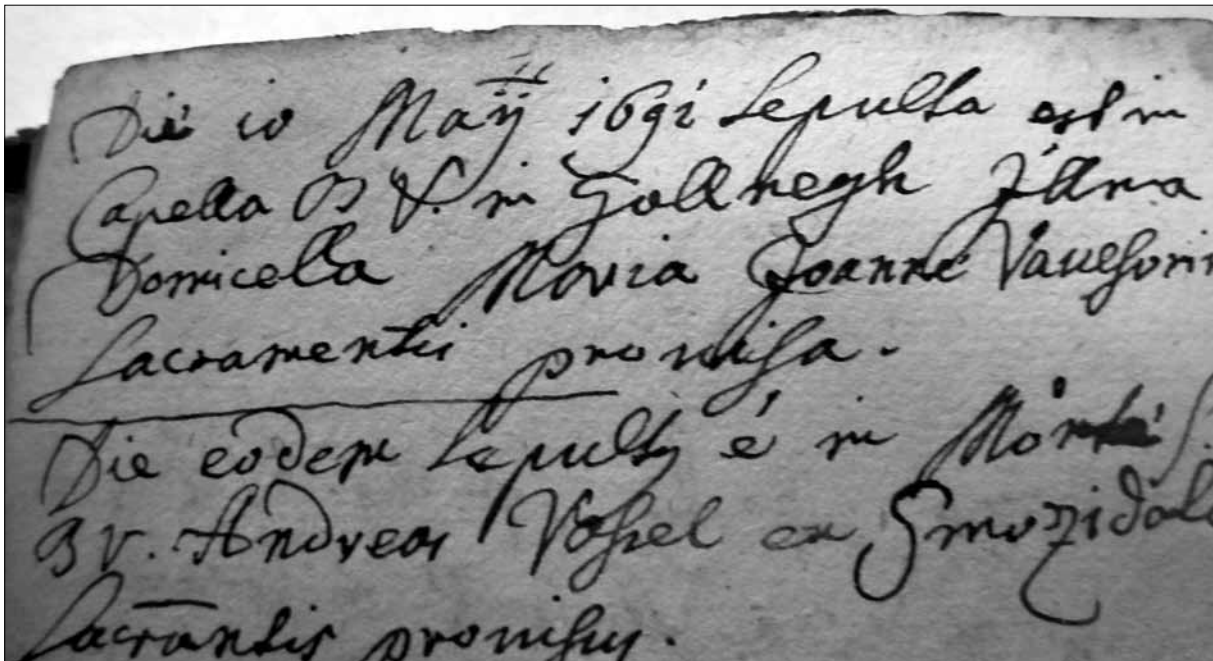 Die 10 Maij 1691 Sepulta est in
Capella B V. in Gallnegh Illma
Domicella Maria Joanne Vauesorin
Sacramentis provisa.
Die eodem Sepultus é in Monte S.
B V. Andreas Vossel ex Smozidole
Sacramtis provisus.